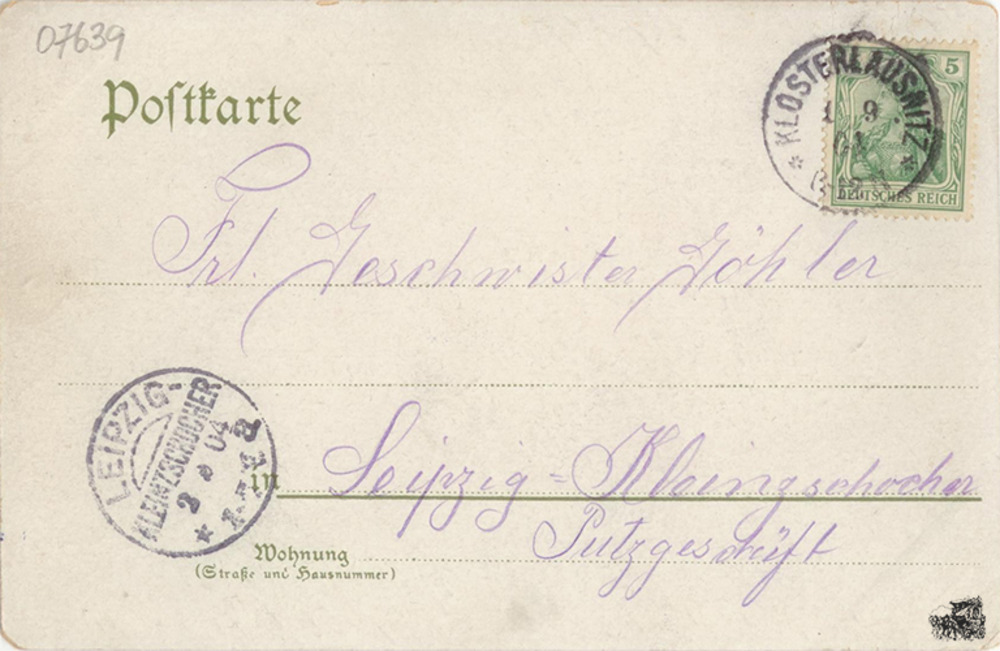 07639
Poſtkarte
KLOSTERLAUSNITZ
1 9
04
5
DEUTSCHES REICH
Frl. Geschwister Göhler
LEIPZIG-
KLEINZSCHOCHER
2 9 04
in Leipzig = Kleingschocher
Putzgeschäft
Wohnung
(Straße und Hausnummer)